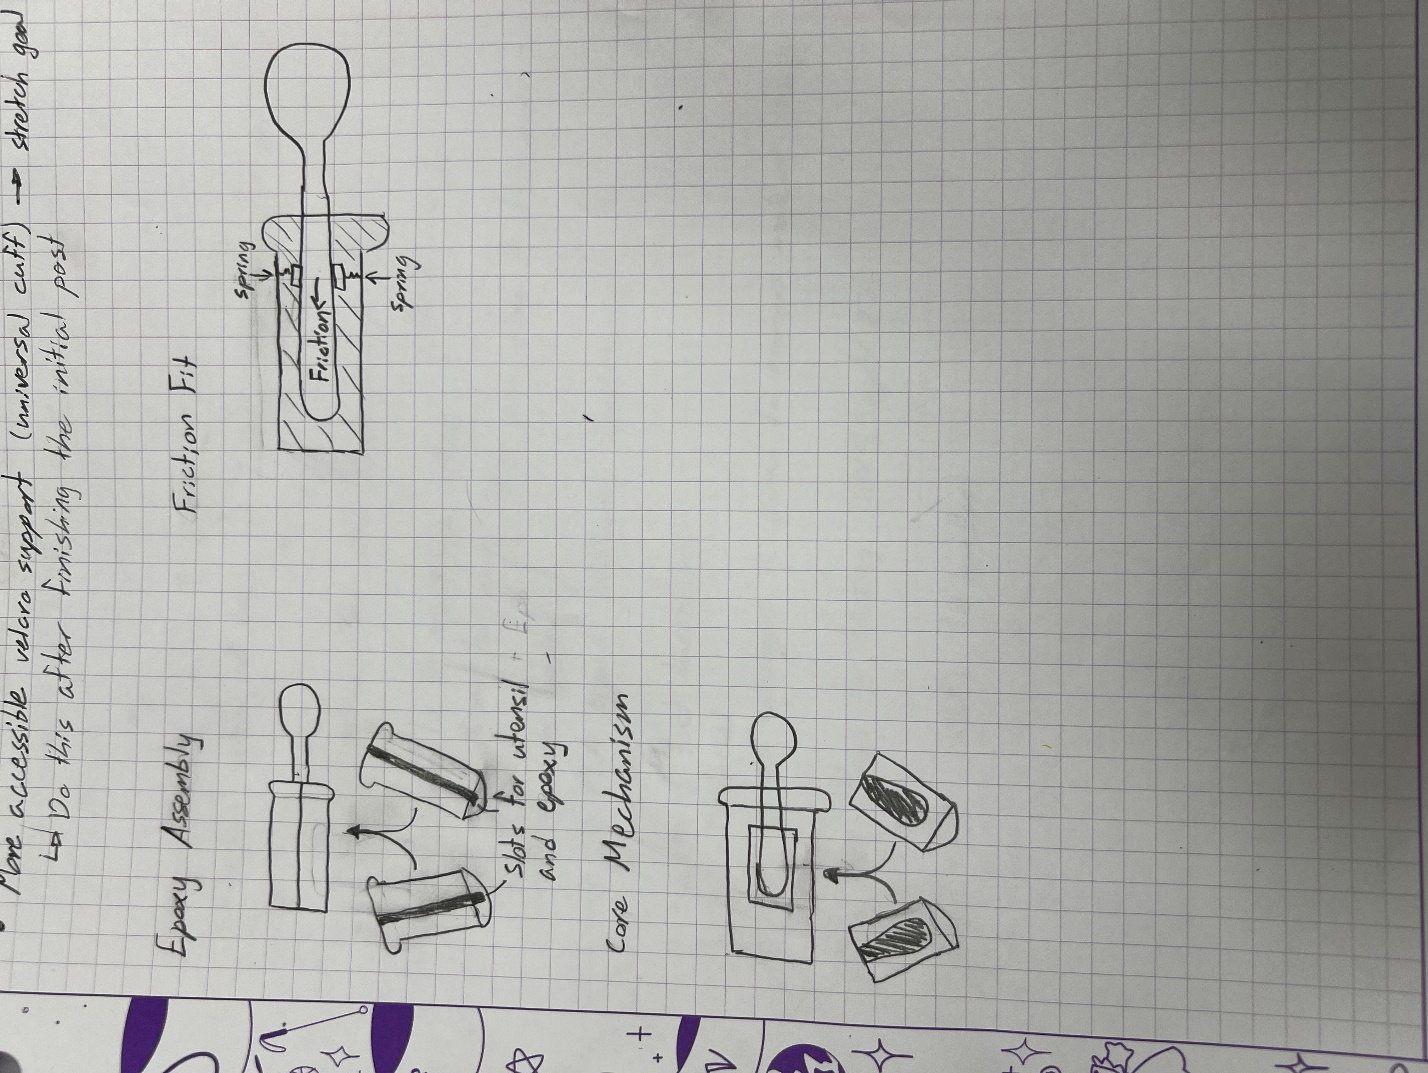 More accessible velcro support (universal cuff) → stretch goal
↳ Do this after finishing the initial post
Epoxy Assembly
Slots for utensil
and epoxy
Friction Fit
spring
Friction
spring
Core Mechanism